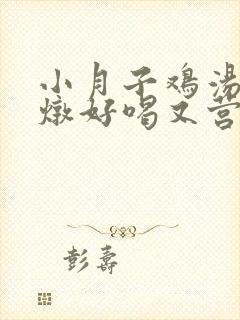 小月子鸡汤
炖好喝又营
彭寿